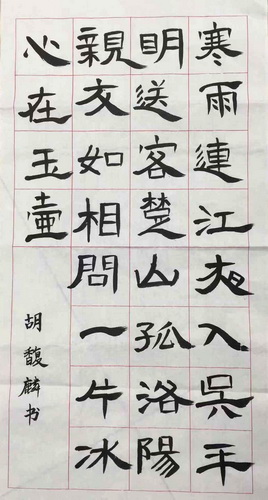 寒雨連江夜入吳平
明送客楚山孤洛陽
親友如相問一片冰
心在玉壺
胡馥麟书